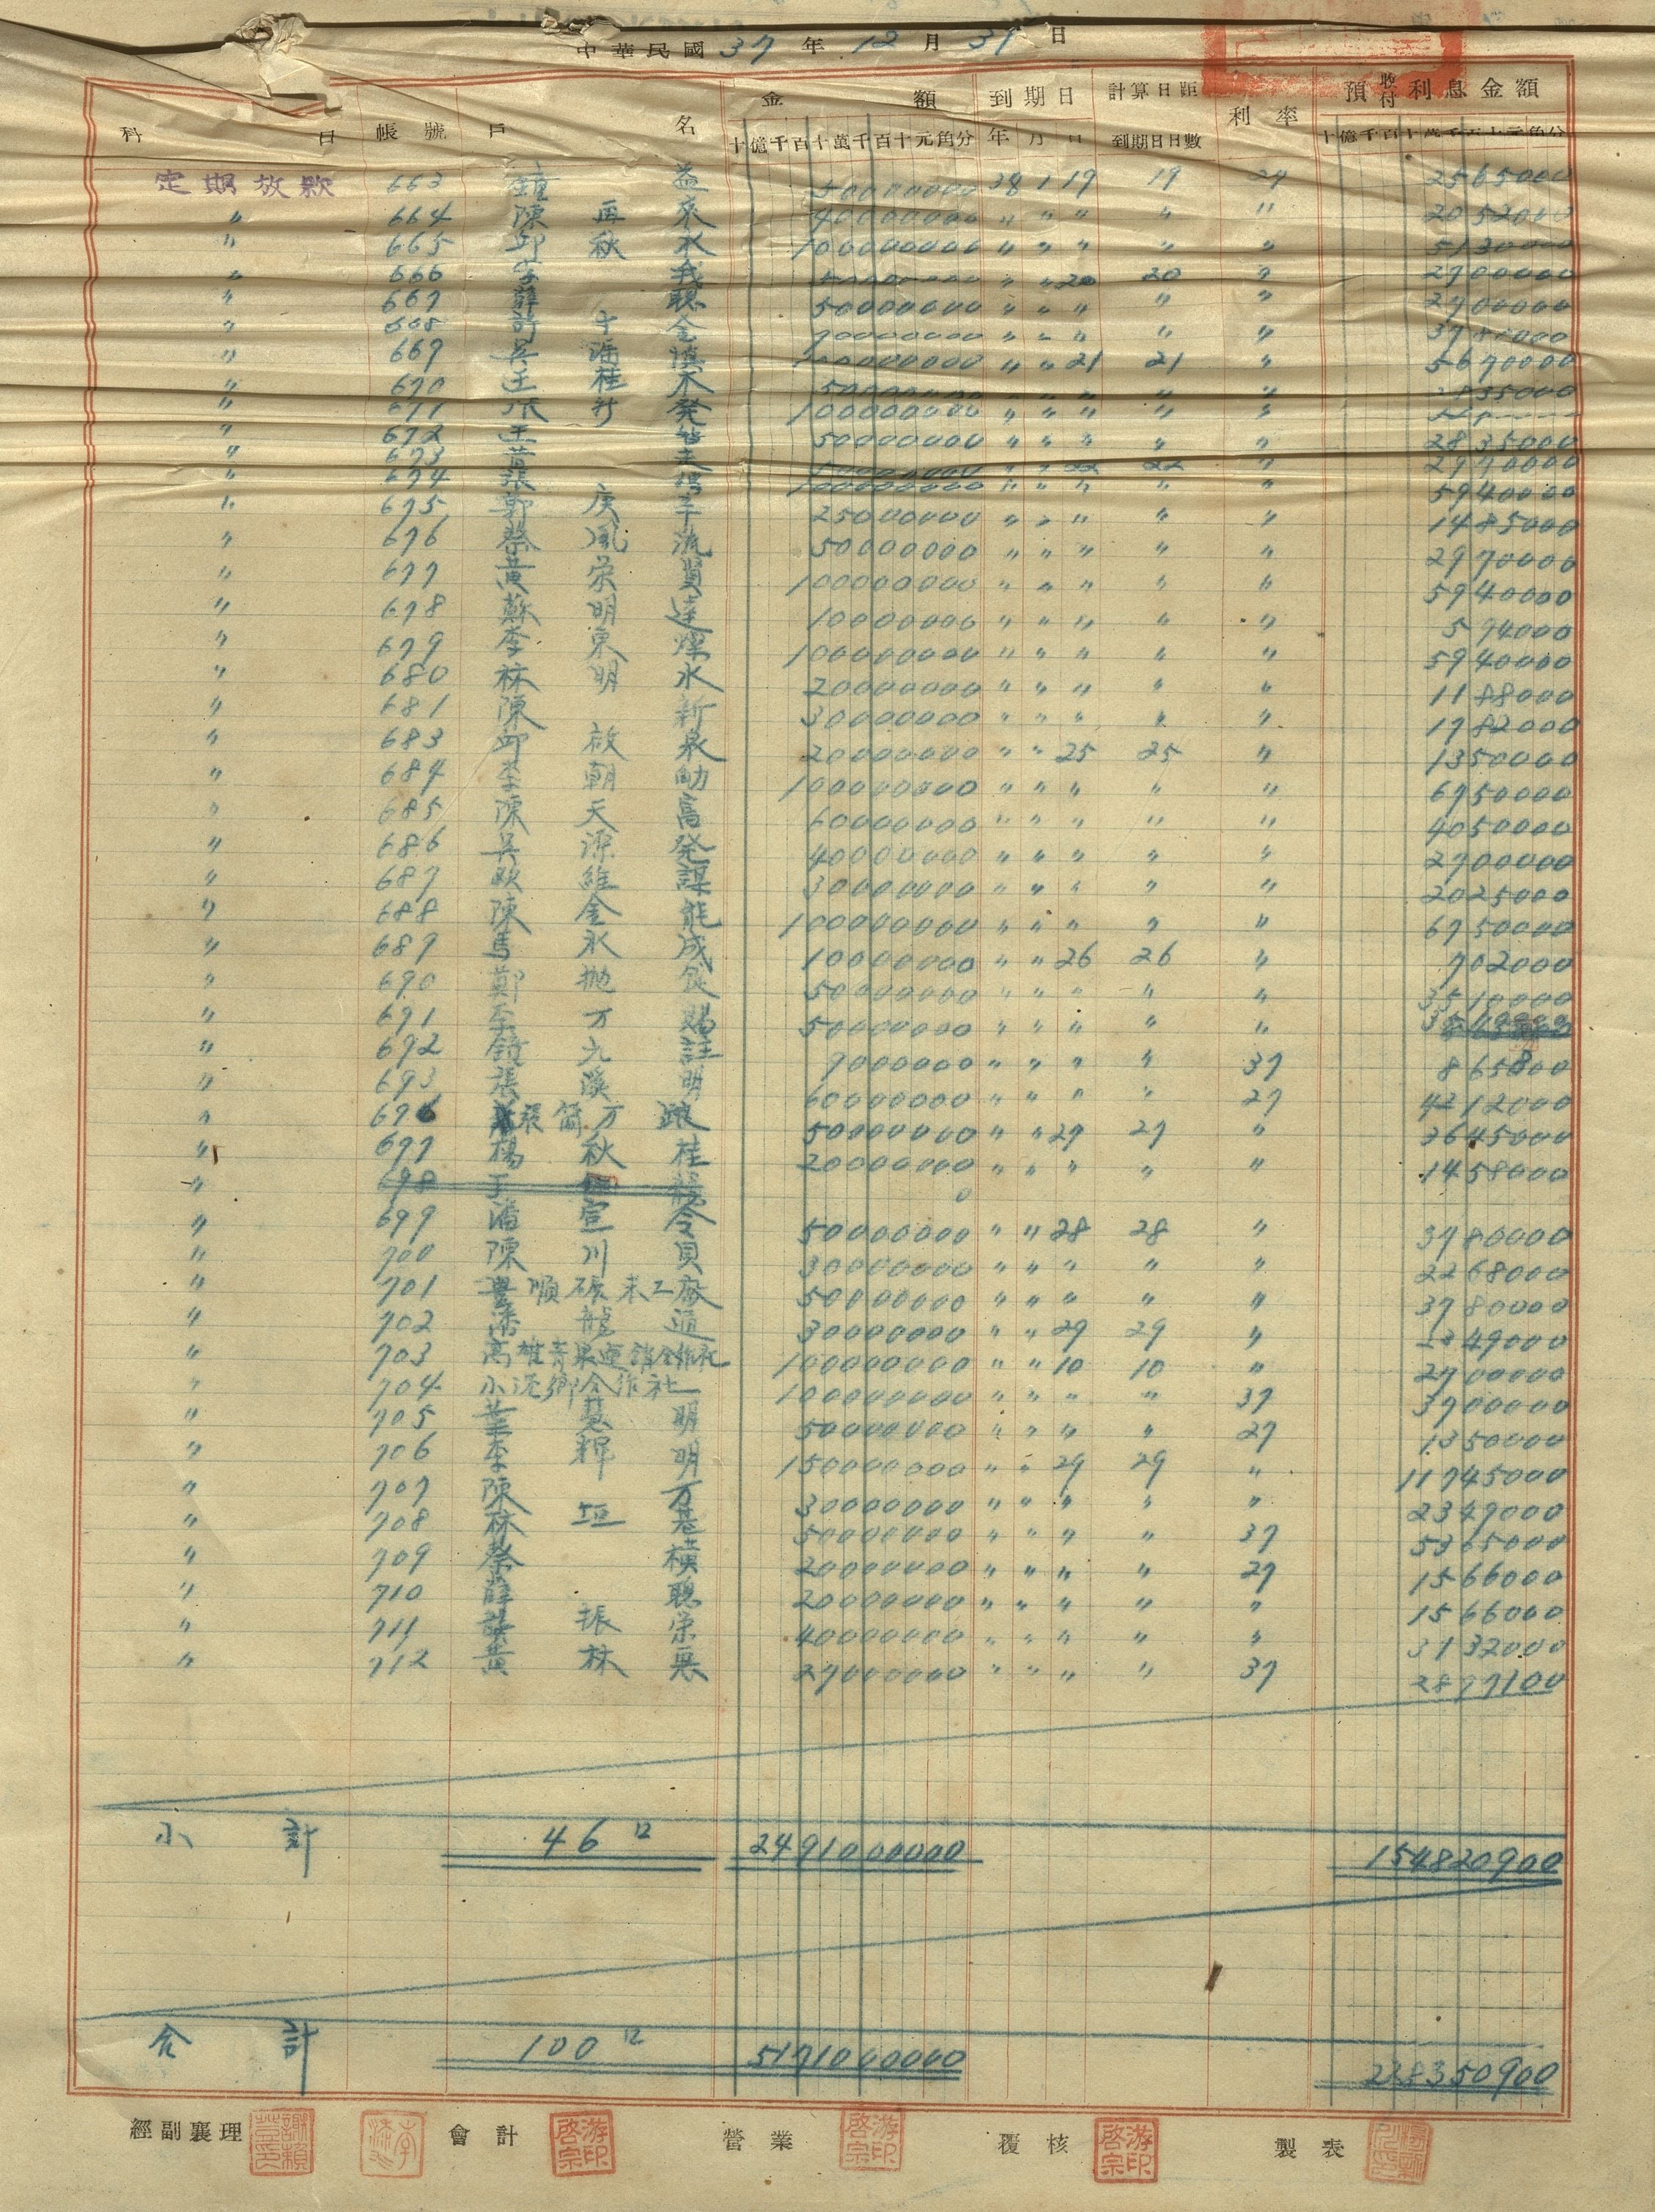 中華民國 37 年 12 月 31 日
科 目 帳 號 戶 名 金 額 到期日 計算日距到期日日數 利 率 預收付利息金額
十億千百十萬千百十元角分 年 月 日 十億千百十萬千百十元角分
定期放款 663 鐘 益 50000000 38 1 19 19 27 2565000
〃 664 陳 再 來 40000000 〃 〃 〃 〃 〃 2052000
〃 665 邱 秋 水 100000000 〃 〃 〃 〃 〃 5130000
〃 666 李 我 50000000 〃 〃 20 20 〃 2700000
〃 667 薛 聰 50000000 〃 〃 〃 〃 〃 2700000
〃 668 許 金 70000000 〃 〃 〃 〃 〃 3780000
〃 669 吳 潘 100000000 〃 〃 21 21 〃 5670000
〃 670 王 桂 木 50000000 〃 〃 〃 〃 〃 2835000
〃 671 張 新 發 100000000 〃 〃 〃 〃 〃
〃 672 王 50000000 〃 〃 〃 〃 〃 2835000
〃 673 黃 50000000 〃 〃 22 22 〃 2970000
〃 674 張 100000000 〃 〃 〃 〃 〃 5940000
〃 675 郭 庚 辛 25000000 〃 〃 〃 〃 〃 1485000
〃 676 蔡 風 流 50000000 〃 〃 〃 〃 〃 2970000
〃 677 黃 榮 賢 100000000 〃 〃 〃 〃 〃 5940000
〃 678 蘇 明 達 10000000 〃 〃 〃 〃 〃 594000
〃 679 李 東 燦 100000000 〃 〃 〃 〃 〃 5940000
〃 680 林 明 水 20000000 〃 〃 〃 〃 〃 1188000
〃 681 陳 新 30000000 〃 〃 〃 〃 〃 1782000
〃 683 邱 啟 泉 20000000 〃 〃 25 25 〃 1350000
〃 684 李 朝 助 100000000 〃 〃 〃 〃 〃 6750000
〃 685 陳 天 富 60000000 〃 〃 〃 〃 〃 4050000
〃 686 吳 源 發 40000000 〃 〃 〃 〃 〃 2700000
〃 687 歐 維 謀 30000000 〃 〃 〃 〃 〃 2025000
〃 688 陳 金 能 100000000 〃 〃 〃 〃 〃 6750000
〃 689 馬 永 成 10000000 〃 〃 26 26 〃 702000
〃 690 鄭 拋 50000000 〃 〃 〃 〃 〃 3510000
〃 691 李 万 賜 50000000 〃 〃 〃 〃 〃
〃 692 九 註 9000000 〃 〃 〃 〃 37 865800
〃 693 張 溪 明 60000000 〃 〃 〃 〃 27 4212000
〃 696 張簡 万 50000000 〃 〃 27 27 〃 3645000
〃 697 楊 秋 桂 20000000 〃 〃 〃 〃 〃 1458000
〃 698 王 0
〃 699 潘 宣 令 50000000 〃 〃 28 28 〃 3780000
〃 700 陳 川 貝 30000000 〃 〃 〃 〃 〃 2268000
〃 701 豐順碾米工廠 50000000 〃 〃 〃 〃 〃 3780000
〃 702 潘 龍 通 30000000 〃 〃 29 29 〃 2349000
〃 703 高雄青果運銷合作社 100000000 〃 〃 10 10 〃 2700000
〃 704 小港鄉合作社 100000000 〃 〃 〃 〃 37 3700000
〃 705 葉 慧 明 50000000 〃 〃 〃 〃 27 1350000
〃 706 李 輝 明 150000000 〃 〃 29 29 〃 11745000
〃 707 陳 万 30000000 〃 〃 〃 〃 〃 2349000
〃 708 林 垣 基 50000000 〃 〃 〃 〃 37 5365000
〃 709 蔡 横 20000000 〃 〃 〃 〃 27 1566000
〃 710 薛 聰 20000000 〃 〃 〃 〃 〃 1566000
〃 711 振 榮 40000000 〃 〃 〃 〃 〃 3132000
〃 712 黃 林 惡 27000000 〃 〃 〃 〃 37 2897100
小 計 46 口 2491000000 154820900
合 計 100 口 5171000000 238350900
經副襄理 會 計 營 業 覆 核 製 表
游啓宗印 游啓宗印 游啓宗印